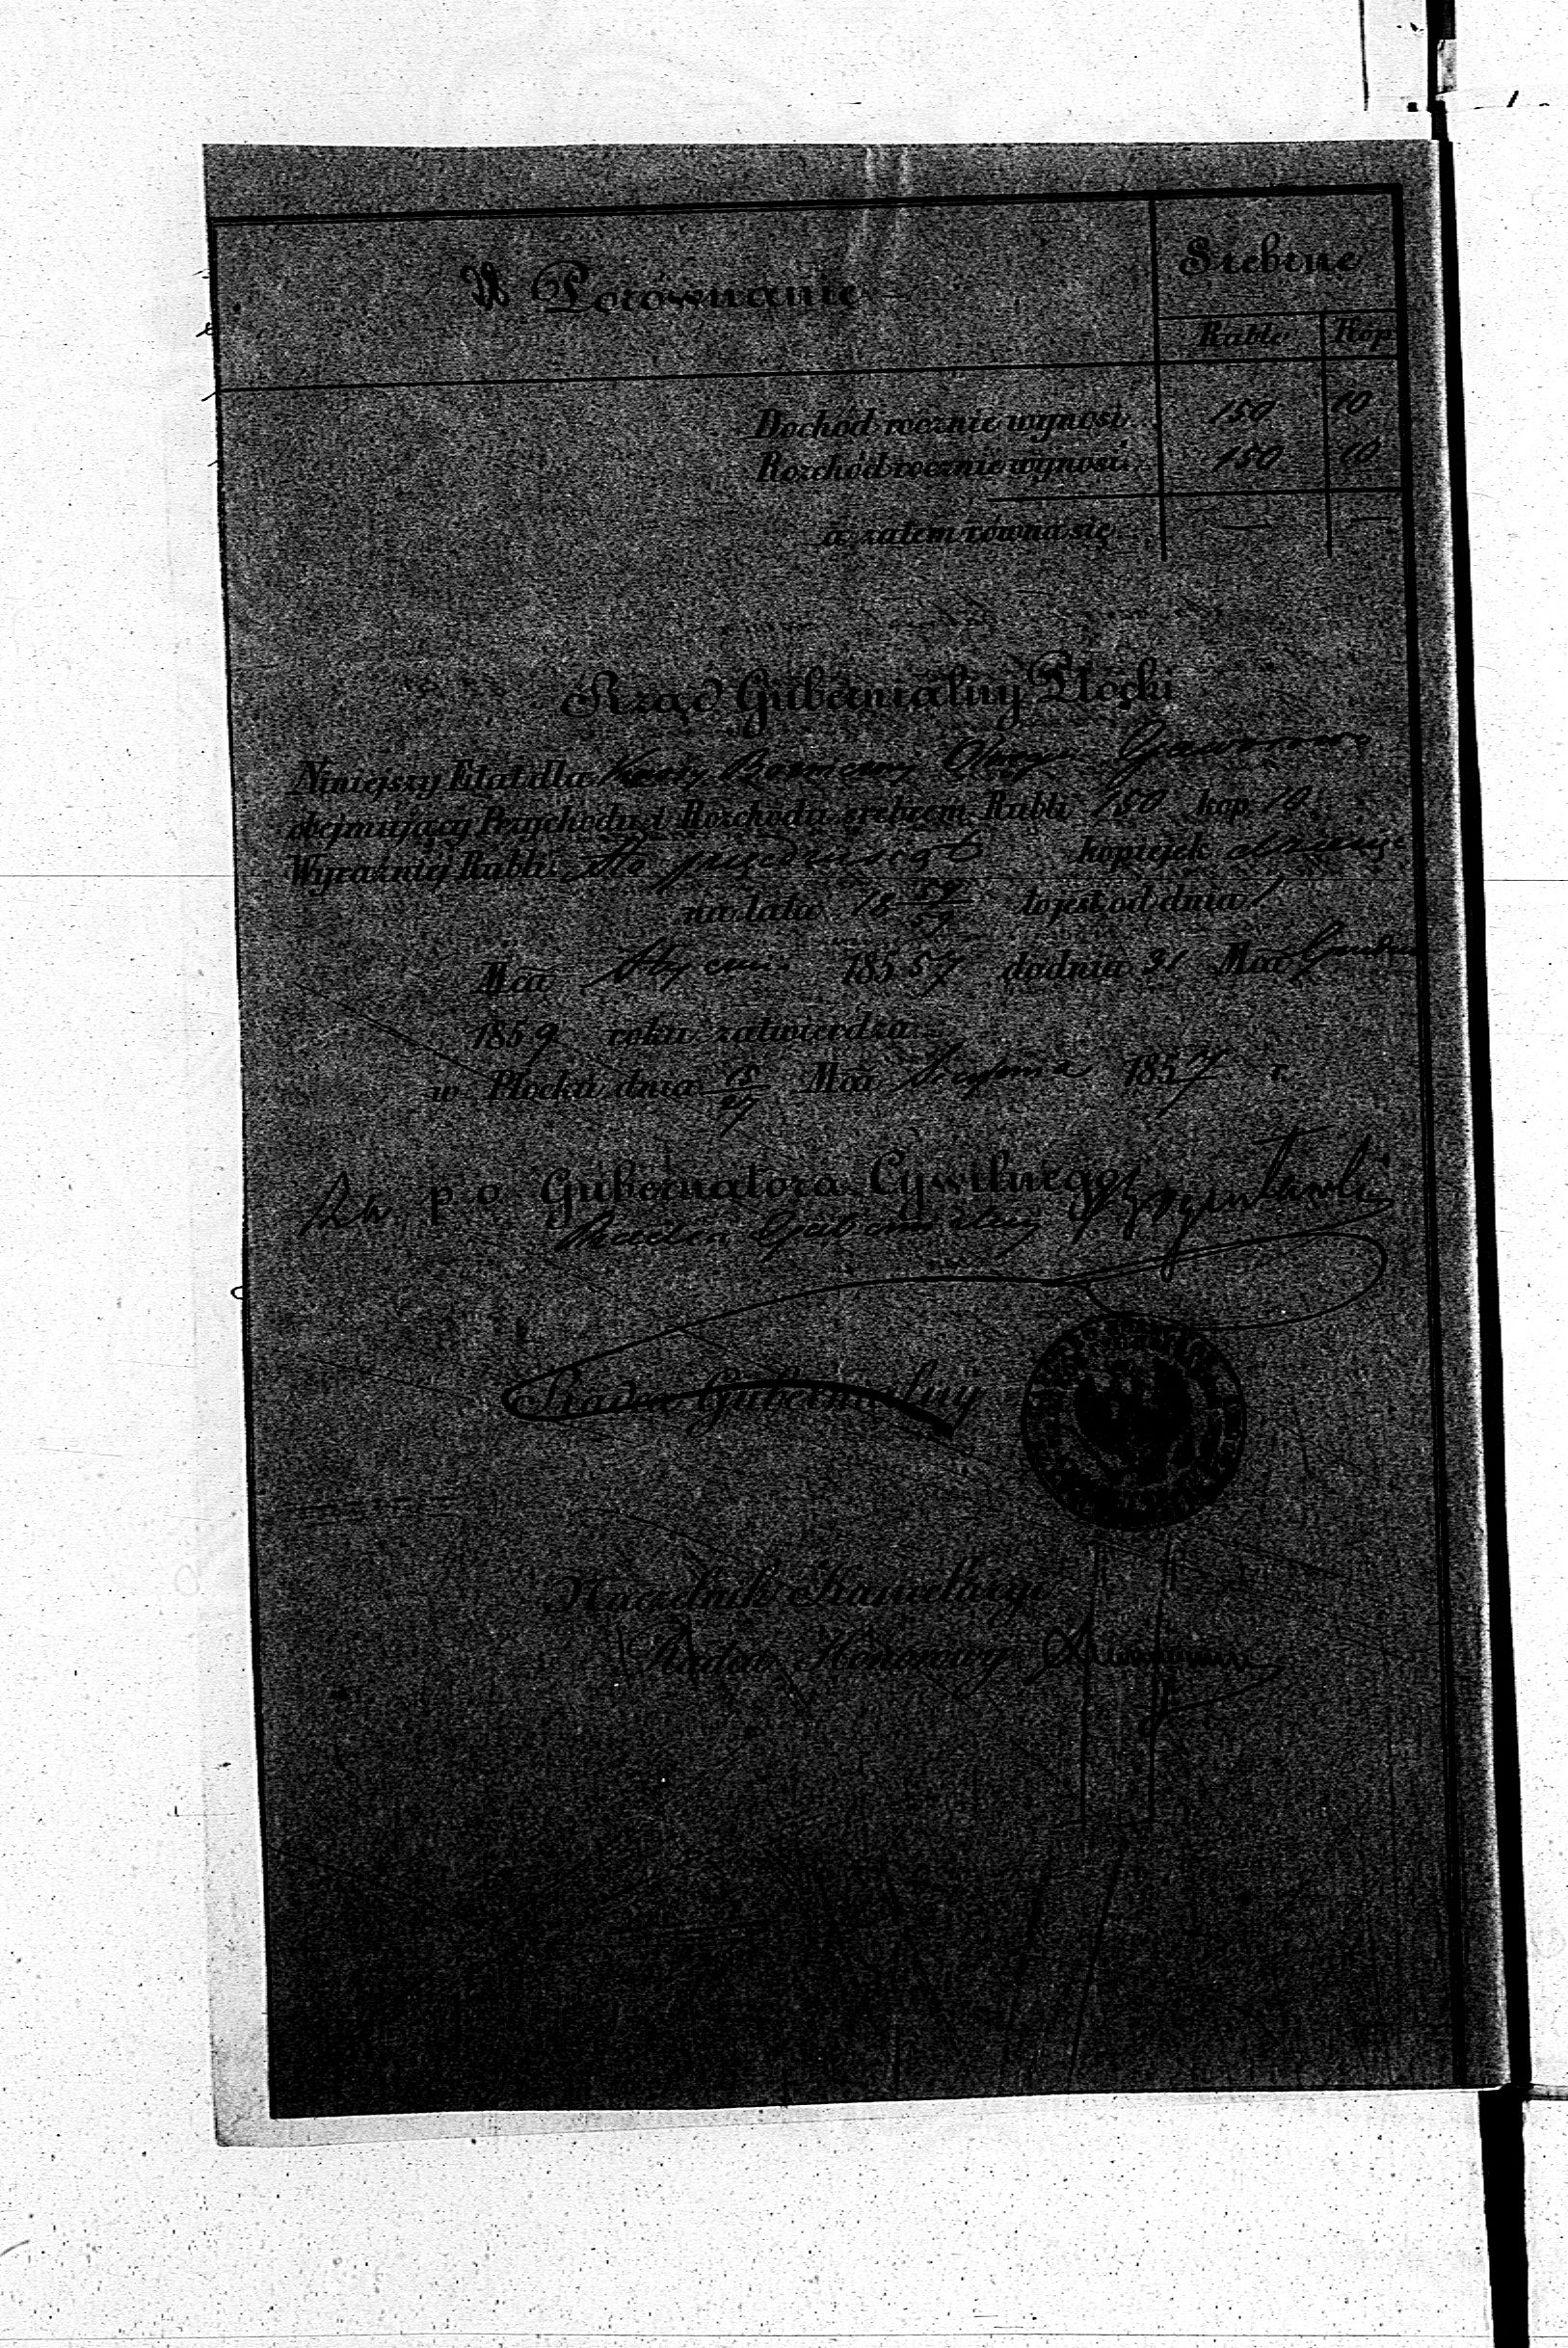 W Porównanie
Srebrne
Ruble Kop
Dochód rocznie wynosi 150 10
Rozchód rocznie wynosi 150 10
a zatem równa się — —
Rząd Gubernialny Płocki
Niniejszy Etat dla Kassy Bożniczej Okręgu
obejmujący Przychodu i Rozchodu srebrem Rubli 150 kop 10
Wyraźniej Rubli Sto pięćdziesiąt kopiejek dziesięć
na lata 18 57/59 to jest od dnia 1
Mca Stycznia 185 57 do dnia 31 Mca Grudnia
1859 roku zatwierdza
w Płocku dnia 15/27 Mca Sierpnia 1857 r.
p. o. Gubernatora Cywilnego
Radca Gubernialny
Radca Gubernialny
Naczelnik Kancellaryi
Radca Honorowy